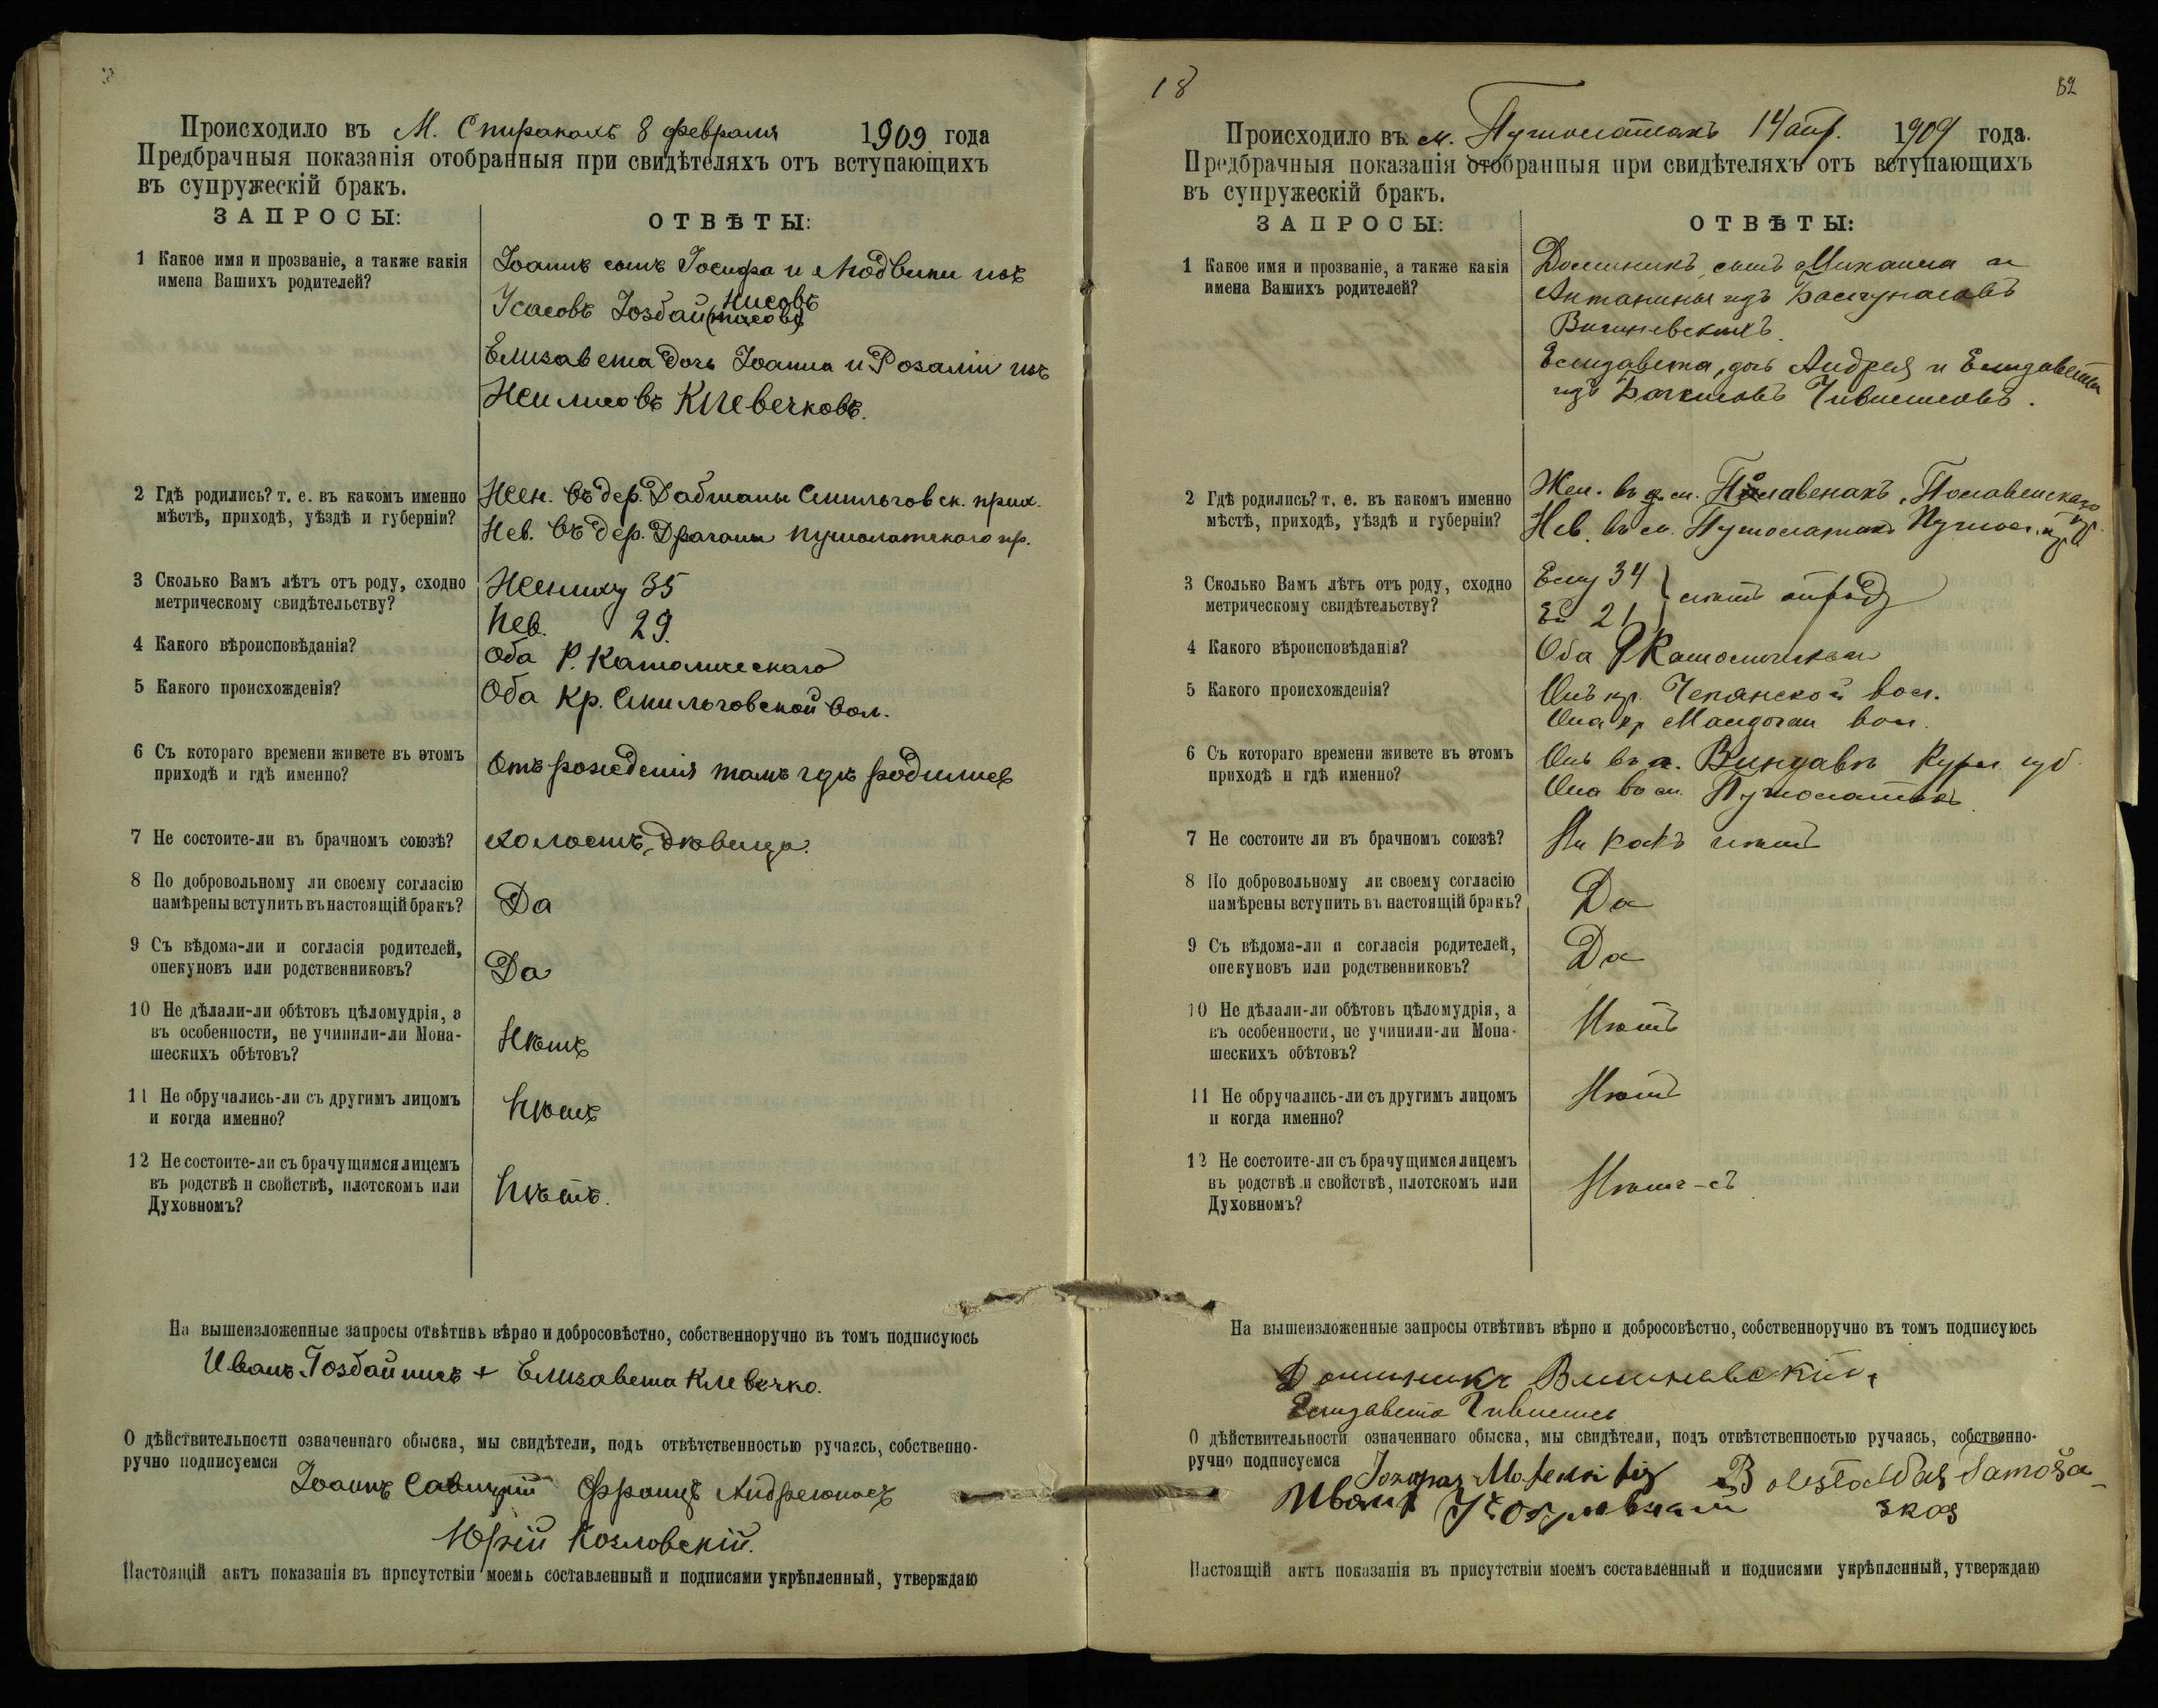 Происходило въ М. Спираколъ 8 февраля 1909 года
Предбрачныя показанія отобранныя при свидѣтеляхъ отъ вступающихъ
въ супружескій бракъ.
ЗАПРОСЫ: ОТВѢТЫ:
1 Какое имя и прозваніе, а также какія
имена Вашихъ родителей?
Іоаннъ сынъ Іосифа и Людвики изъ
Елизавета дочь Іоанна и Розаліи изъ
Клевечковъ.
2 Гдѣ родились? т. е. въ какомъ именно
мѣстѣ, приходѣ, уѣздѣ и губерніи?
Жен. въ дер. Смильговск. прих.
Нев. въ дер. Драганы Пушолатскаго пр.
3 Сколько Вамъ лѣтъ отъ роду, сходно
метрическому свидѣтельству?
Жениху 35
Нев. 29.
4 Какого вѣроисповѣданія?
Оба Р. Католическаго
5 Какого происхожденія?
Оба Кр. Смильговской вол.
6 Съ котораго времени живете въ этомъ
приходѣ и гдѣ именно?
Отъ рожденія тамъ гдѣ родились
7 Не состоите-ли въ брачномъ союзѣ?
холостъ, дѣвица.
8 По добровольному ли своему согласію
намѣрены вступить въ настоящій бракъ?
Да
9 Съ вѣдома-ли и согласія родителей,
опекуновъ или родственниковъ?
Да
10 Не дѣлали-ли обѣтовъ цѣломудрія, а
въ особенности, не учинили-ли Мона-
шескихъ обѣтовъ?
Нѣтъ
11 Не обручались-ли съ другимъ лицомъ
и когда именно?
Нѣтъ
12 Не состоите-ли съ брачущимся лицемъ
въ родствѣ и свойствѣ, плотскомъ или
Духовномъ?
Нѣтъ.
На вышеизложенные запросы отвѣтивъ вѣрно и добросовѣстно, собственноручно въ томъ подписуюсь
Иванъ Іозбайнисъ + Елизавета Клевечко.
О дѣйствительности означеннаго обыска, мы свидѣтели, подъ отвѣтственностью ручаясь, собственно-
ручно подписуемся
Іоаннъ Савицкій Францъ Андреюнасъ
Юрій Козловскій.
Настоящій актъ показанія въ присутствіи моемъ составленный и подписями укрѣпленный, утверждаю
18 52
Происходило въ м. Пушолатахъ 14 апр. 1909 года.
Предбрачныя показанія отобранныя при свидѣтеляхъ отъ вступающихъ
въ супружескій бракъ.
ЗАПРОСЫ: ОТВѢТЫ:
1 Какое имя и прозваніе, а также какія
имена Вашихъ родителей?
Доминикъ, сынъ Михаила и
Антанины изъ
Вишневскихъ.
Елизавета, дочь Андрея и Елизаветы
изъ
2 Гдѣ родились? т. е. въ какомъ именно
мѣстѣ, приходѣ, уѣздѣ и губерніи?
Жен. въ
Нев. въ м. Пушолатахъ Пушол. пр.
3 Сколько Вамъ лѣтъ отъ роду, сходно
метрическому свидѣтельству?
Ему 34
Ей 21 лѣтъ отъ роду
4 Какого вѣроисповѣданія?
Оба Р. Католическаго
5 Какого происхожденія?
Онъ кр. вол.
Она кр. вол.
6 Съ котораго времени живете въ этомъ
приходѣ и гдѣ именно?
Онъ въ г. Виндавѣ Курл. губ.
Она въ м. Пушолатахъ.
7 Не состоите ли въ брачномъ союзѣ?
8 По добровольному ли своему согласію
намѣрены вступить въ настоящій бракъ?
Да
9 Съ вѣдома-ли и согласія родителей,
опекуновъ или родственниковъ?
Да
10 Не дѣлали-ли обѣтовъ цѣломудрія, а
въ особенности, не учинили-ли Мона-
шескихъ обѣтовъ?
Нѣтъ
11 Не обручались-ли съ другимъ лицомъ
и когда именно?
Нѣтъ
12 Не состоите-ли съ брачущимся лицемъ
въ родствѣ и свойствѣ, плотскомъ или
Духовномъ?
На вышеизложенные запросы отвѣтивъ вѣрно и добросовѣстно, собственноручно въ томъ подписуюсь
Доминикъ Вишневскій
Елизавета
О дѣйствительности означеннаго обыска, мы свидѣтели, подъ отвѣтственностью ручаясь, собственно-
ручно подписуемся
Иванъ
Настоящій актъ показанія въ присутствіи моемъ составленный и подписями укрѣпленный, утверждаю